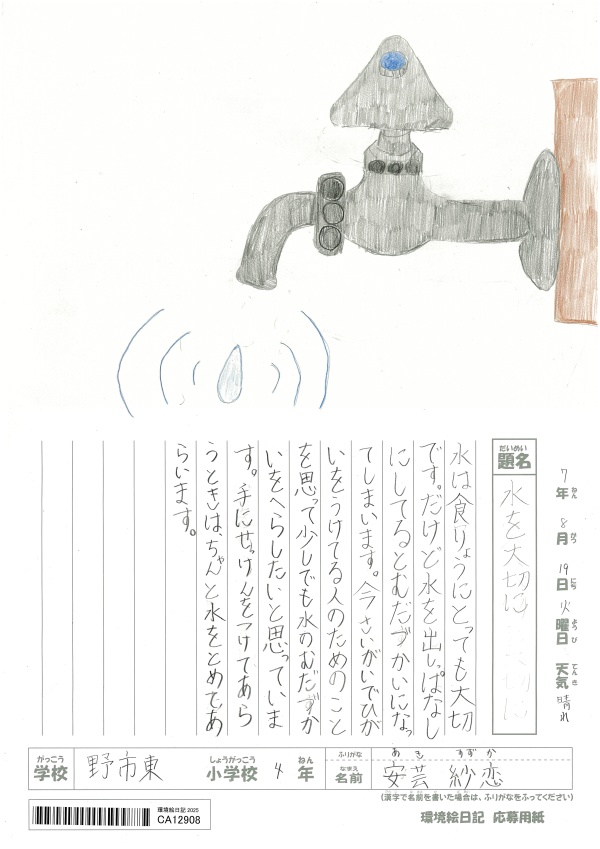 7年ねん 8月がつ 19日にち 火曜日ようび 天気てんき 晴れ
だいめい
題名
水を大切に
水は食りょうにとっても大切
です。だけど水を出しっぱなし
にしてるとむだづかいになっ
てしまいます。今さいがいでひが
いをうけてる人のためのこと
を思って少しでも水のむだずか
いをへらしたいと思っていま
す。手にせっけんをつけてあら
うときは、ちゃんと水をとめてあ
らいます。
がっこう
学校
野市東
しょうがっこう
小学校
4
ねん
年
ふりがな
あき すずか
なまえ
名前
安芸 紗恋
(漢字で名前を書いた場合は、ふりがなをふってください)
環境絵日記 2025
CA12908
環境絵日記 応募用紙